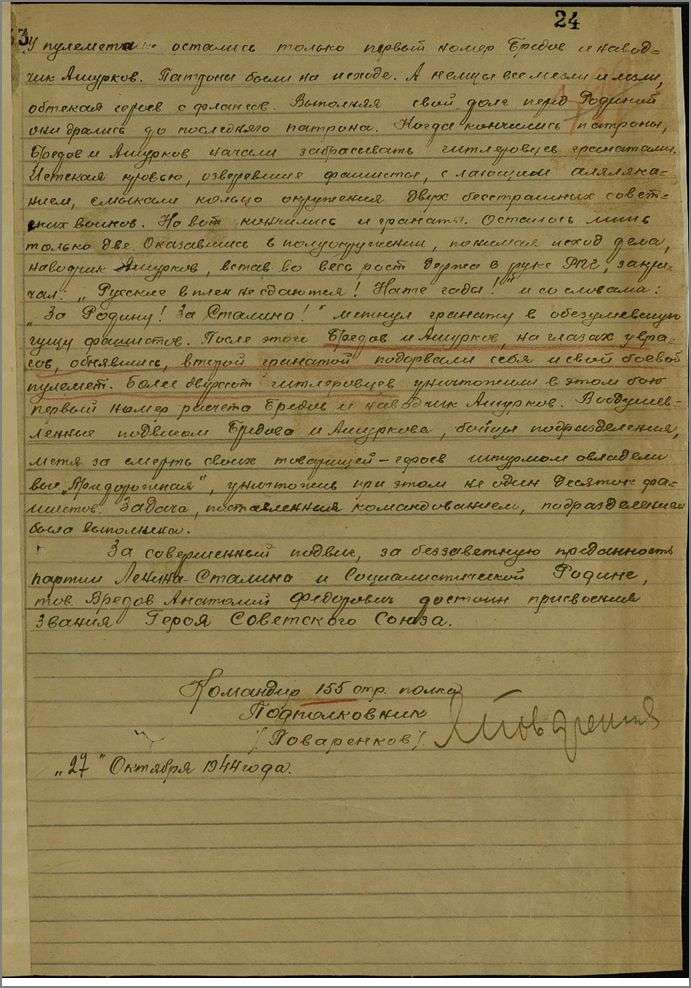 24
53
У пулемета остались только первый номер Бредов и навод-
чик Ашурков. Патроны были на исходе. А немцы все лезли и лезли,
обтекая героев с флангов. Выполняя свой долг перед Родиной
они дрались до последнего патрона. Когда кончились патроны,
Бредов и Ашурков начали забрасывать гитлеровцев гранатами.
Истекая кровью, озверевшие фашисты, с лающим
нием, смыкали кольцо окружения двух бесстрашных совет-
ских воинов. Но вот кончились и гранаты. Осталось лишь
только две. Оказавшись в полуокружении, понимая исход дела,
наводчик Ашурков, встав во весь рост держа в руке закри-
чал: „Русские в плен не сдаются! Нате гады!" и со словами:
„За Родину! За Сталина!" метнул гранату в обезумевшую
гущу фашистов. После этого Бредов и Ашурков, на глазах у вра-
гов, обнявшись, второй гранатой подорвали себя и свой боевой
пулемет. Более двухсот гитлеровцев уничтожили в этом бою
первый номер расчета Бредов и наводчик Ашурков. Воодушев-
ленные подвигом Бредова и Ашуркова, бойцы подразделения,
мстя за смерть своих товарищей – героев штурмом овладели
выс. „Придорожная", уничтожив при этом не один десяток фа-
шистов. Задача, поставленная командованием, подразделением
была выполнена.
За совершенный подвиг, за беззаветную преданность
партии Ленина-Сталина и Социалистической Родине,
тов Бредов Анатолий Федорович достоин присвоения
звания Героя Советского Союза.
Командир 155 стр. полка
Подполковник
/Поваренков/
„27" Октября 1944 года.